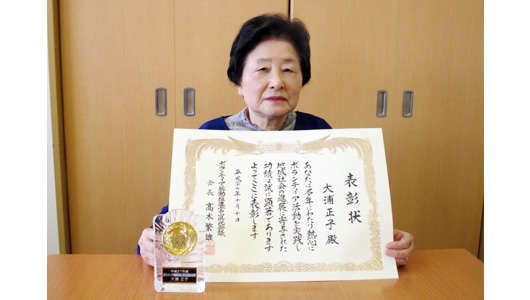 表彰状
大浦正子 殿
あなたは多年にわたり熱心に
ボランティア活動を実践し
地域社会の進展に寄与された
功績は誠に顕著であります
よってここに表彰します
平成二十七年十月十日
会長 髙木繁雄
平成27年度
大浦 正子